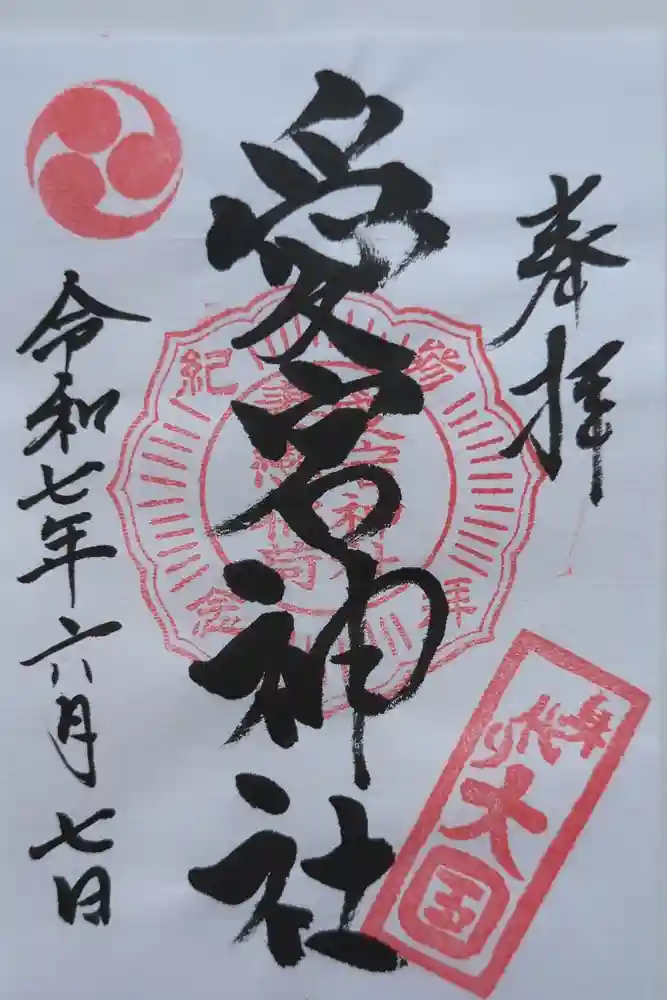 奉拝
愛宕神社
令和七年六月七日
参拝紀念
身代り大国